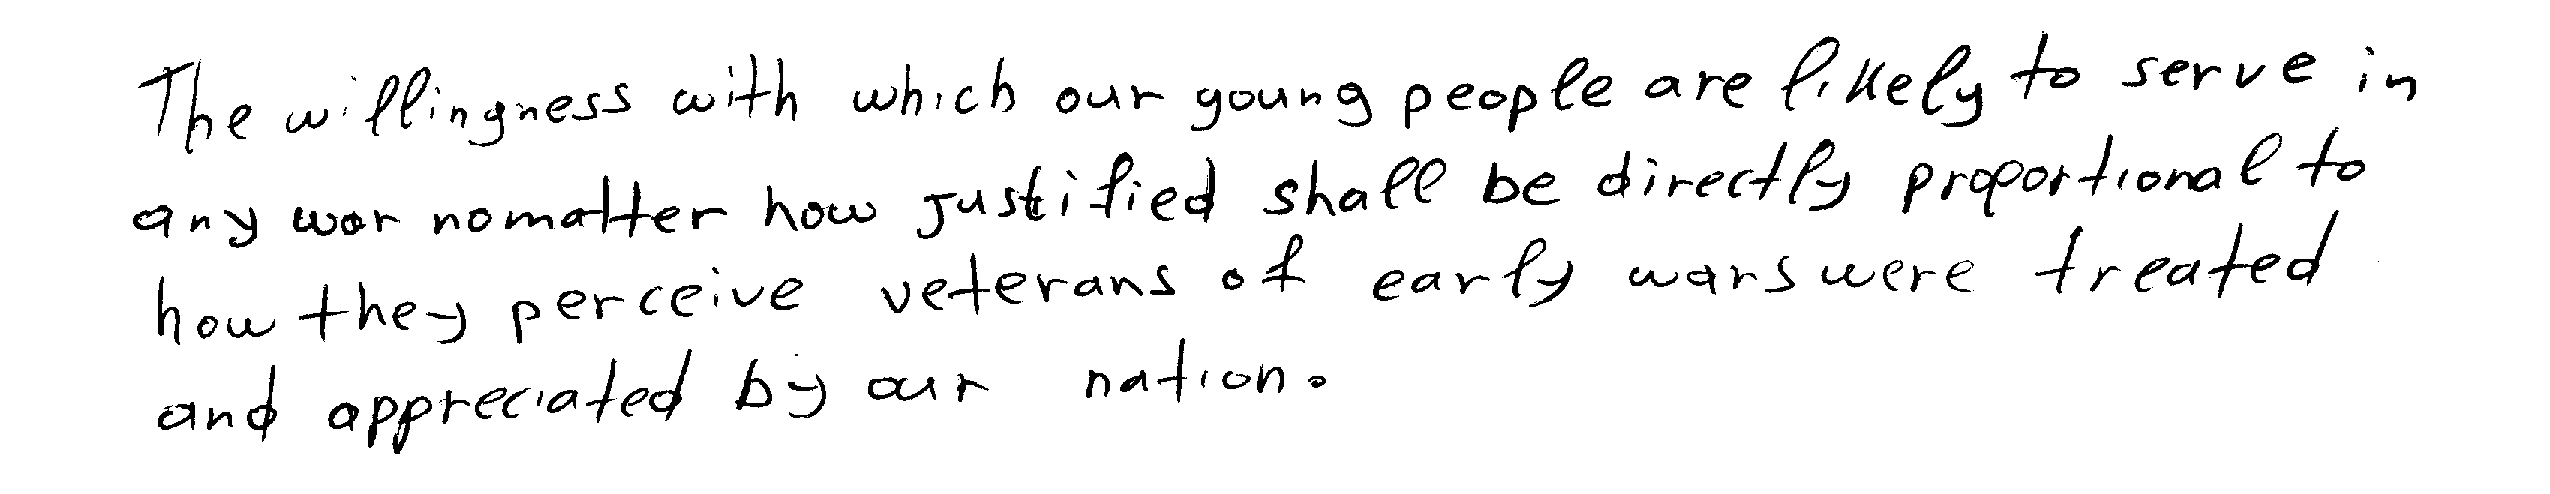 The willingness with which our young people are likely to serve in
any war nomatter how justified shall be directly proportional to
how they perceive veterans of early wars were treated
and appreciated by our nation.